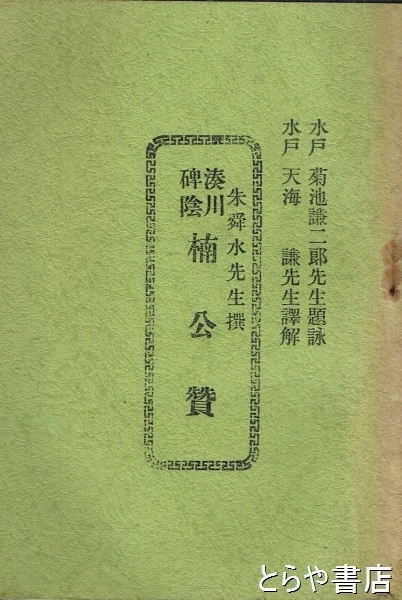 水戸 菊池謙二郎先生題詠
水戸 天海 謙先生譯解
朱舜水先生撰
湊川碑陰 楠公贊
とらや書店